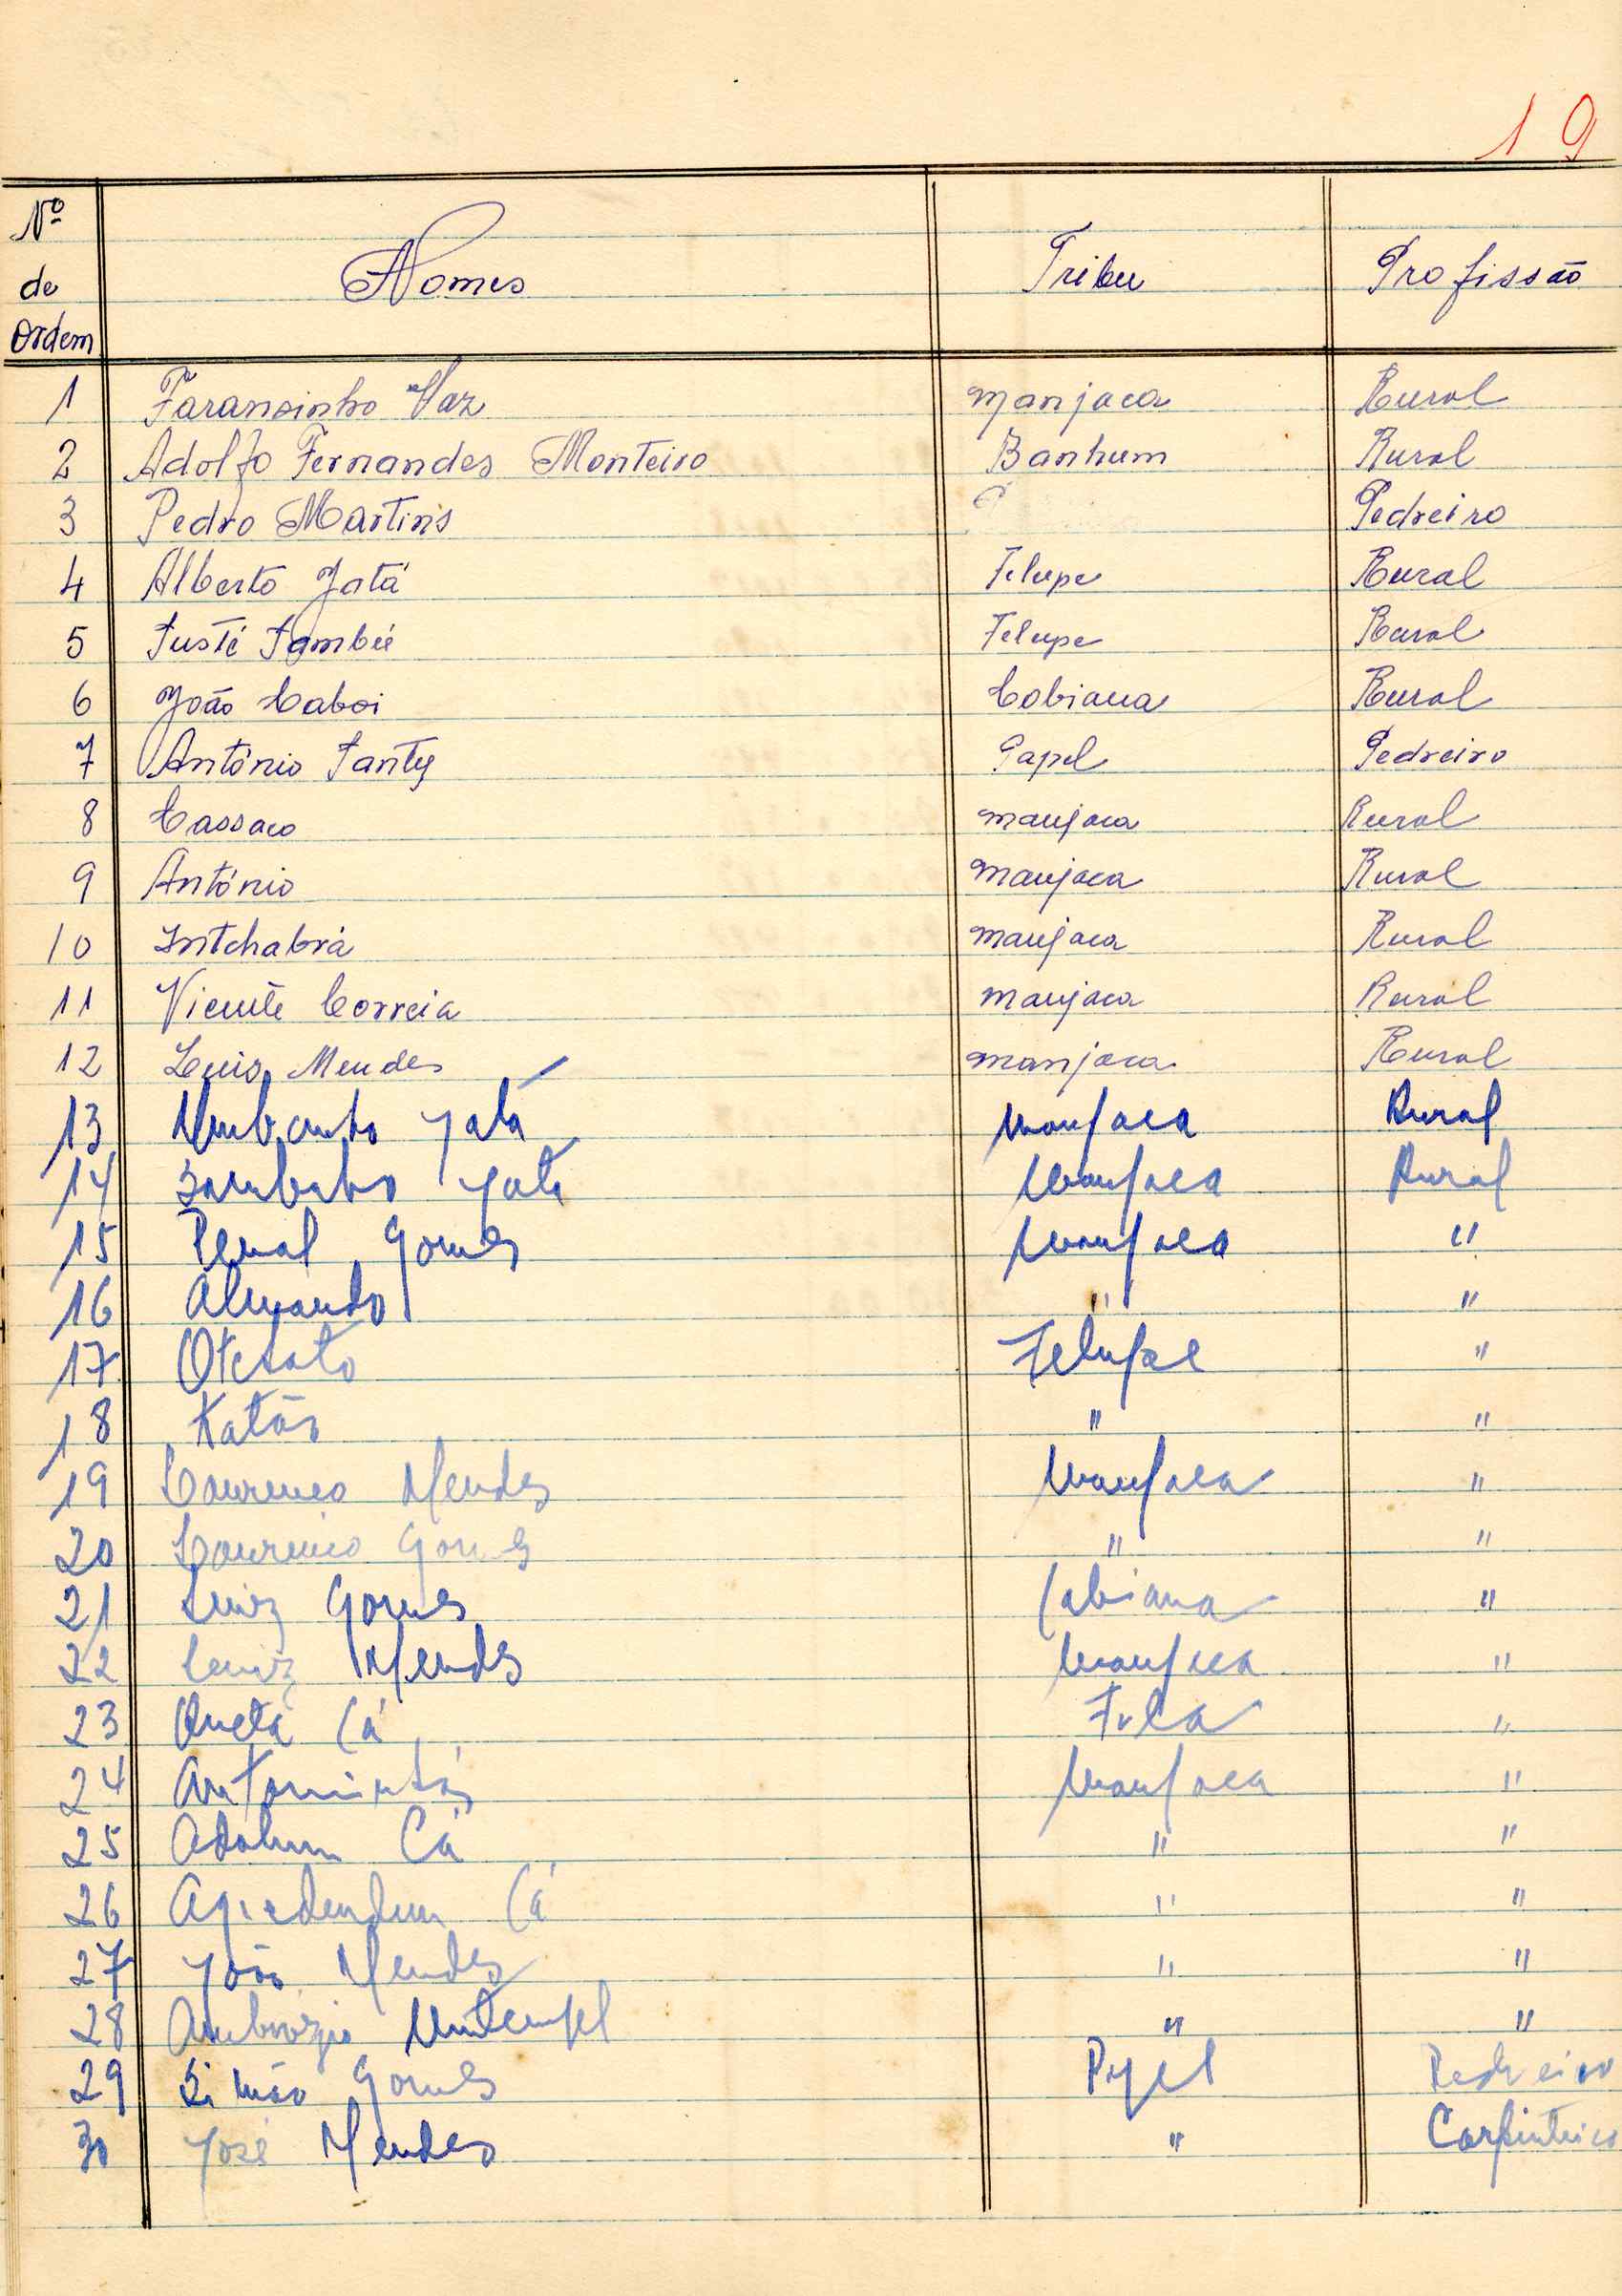 19
Nº de Ordem Nomes Tribu Profissão
1 Faransinho Vaz manjaca Rural
2 Adolfo Fernandes Monteiro Banhum Rural
3 Pedro Martins P Pedreiro
4 Alberto Jatá Felupe Rural
5 Felupe Rural
6 João Caboi Cobiana Rural
7 António Papel Pedreiro
8 Cassaco manjaca Rural
9 António manjaca Rural
10 Intchabrá manjaca Rural
11 Vicente Correia manjaca Rural
12 Luis Mendes manjaca Rural
13 Jatá manjaca Rural
14 Jatá manjaca Rural
15 Gomes manjaca "
16 Armando " "
17 Felupe "
18 " "
19 Lourenco Mendes manjaca "
20 Lourenco Gomes " "
21 Luiz Gomes Cabiana "
22 Luiz Mendes manjaca "
23 Cá Fula "
24 manjaca "
25 Cá " "
26 Cá " "
27 João Mendes " "
28 Ambrózio " "
29 Simão Gomes Pepel Pedreiro
30 José Mendes " Carpinteiro